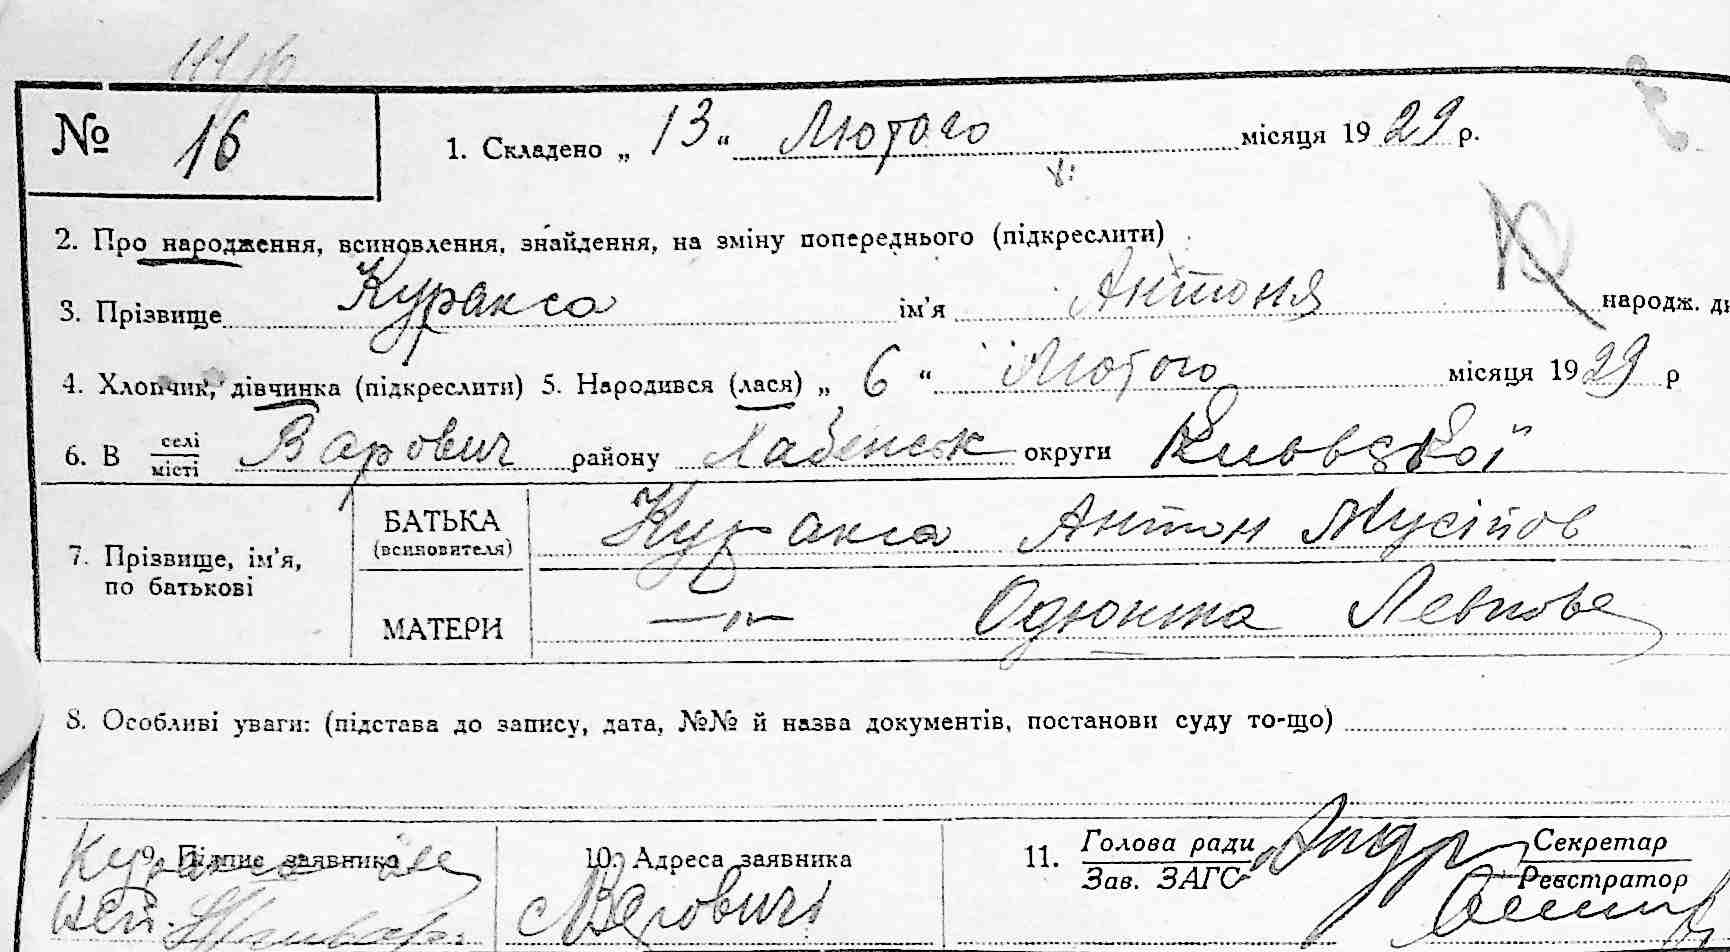 № 16 1. Складено „ 13 “ Лютого місяця 1929 р.
2. Про народження, всиновлення, знайдення, на зміну попереднього (підкреслити)
3. Прізвище Куракса ім'я Антоня народж.
4. Хлопчик, дівчинка (підкреслити) 5. Народився (лася) „ 6 “ Лютого місяця 1929 р
6. В селі місті Варович району Хабенськ округи Київської
7. Прізвище, ім'я, по батькові
БАТЬКА (всиновителя) Куракса Антон Мусійов
МАТЕРИ —„— Одюкша Левкова
8. Особливі уваги: (підстава до запису, дата, №№ й назва документів, постанови суду то-що)
9. Підпис заявника Куракса
10. Адреса заявника с Варовичі
11. Голова ради Зав. ЗАГС Секретар Реєстратор